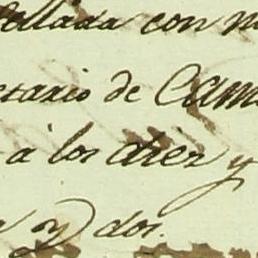 sellada con m
etario de Cama
a los diez y
y dos.